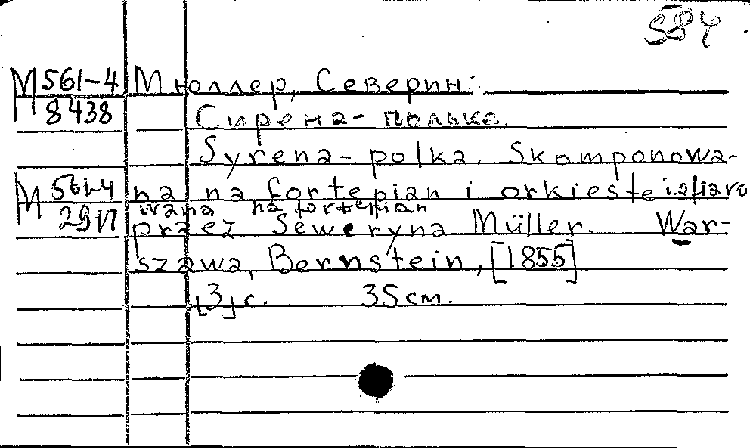 584
М 561-4 Мюллер, Северин.
8438 Сирена-полька.
Syrena-polka. Skomponowa-
М 561-4 na na fortepian i orkieste i ofiaro
wana na fortepian
przez Seweryna Müller. War-
szawa, Bernstein, [1855]
[3] с. 35 cm.